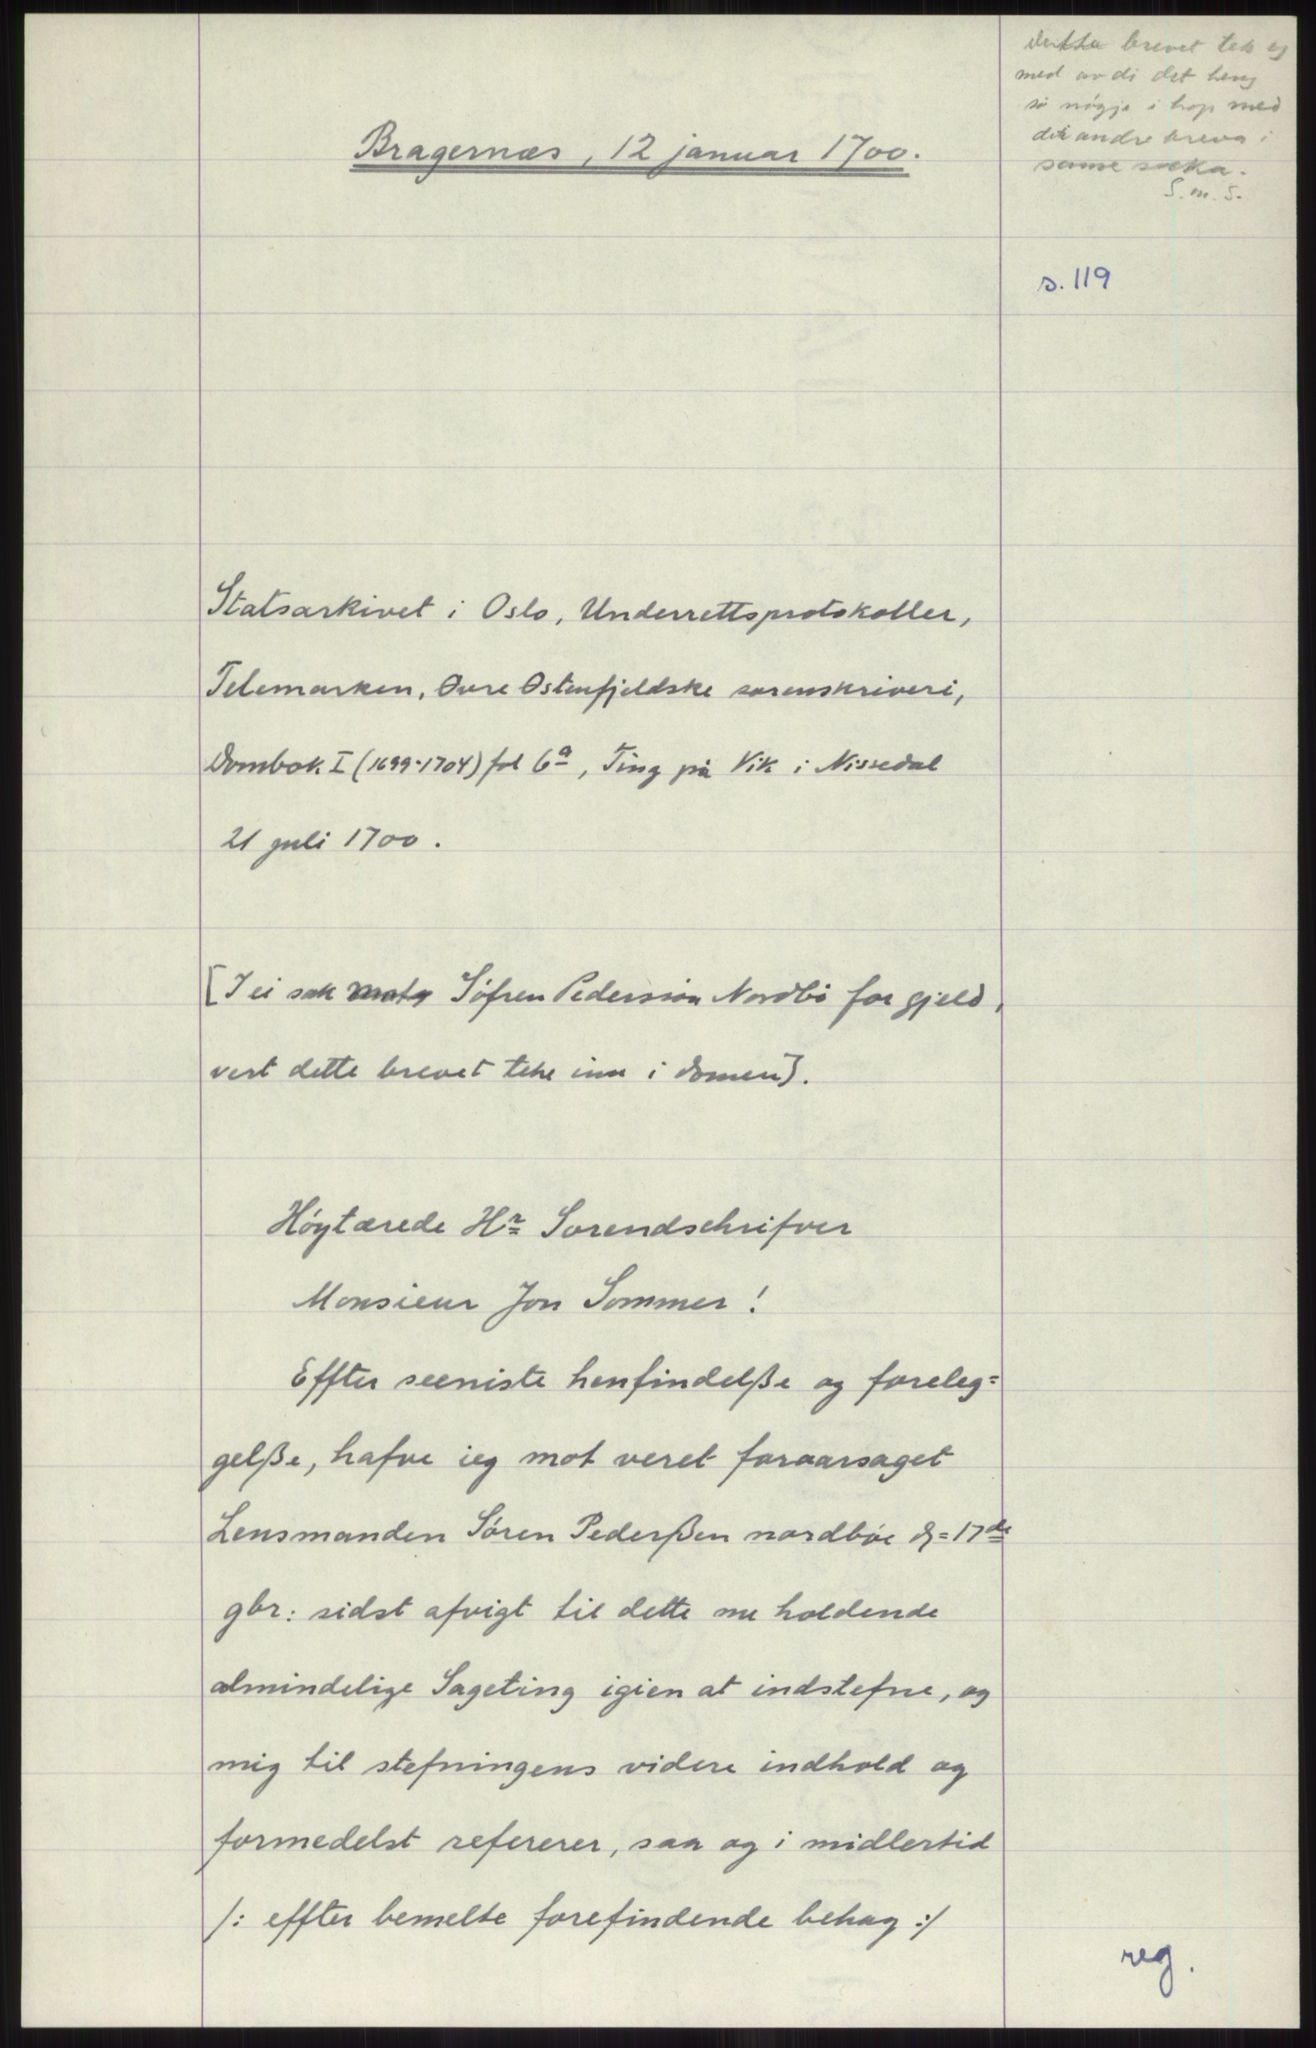 Dette brevet tek eg
med av di det heng
så nøgje i hop med
dei andre breva i
same saka.
S. m. S.
Bragernæs, 12 januar 1700.
s. 119
Statsarkivet i Oslo, Underrettsprotokoller,
Telemarken, Øvre Østenfjeldske sorenskriveri,
Dombok I (1699-1704) fol 6a, Ting på Vik i Nissedal
21 juli 1700.
[I ei sak Søfren Pederssøn Nordbø for gjeld,
vert dette brevet teke inn i domen].
Høytærede Hr Sorendschrifver
Monsieur Jon Sommer!
Effter seeniste henfindelße og foreleg=
gelße, hafve ieg mot veret foraarsaget
Lensmanden Søren Pederßen nordbøe d=17de
9br: sidst afvigt til dette nu holdende
almindelige Sageting igien at indstefne, og
mig til stefningens videre indhold og
formedelst refererer, saa og i midlertid
/: effter bemelte forefindende behag :/
reg.